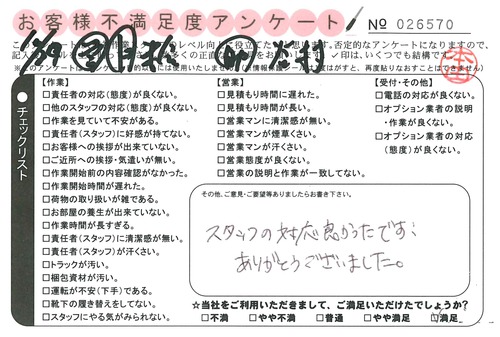 お客様不満足度アンケート
No 026570
【作業】
□責任者の対応(態度)が良くない。
□他のスタッフの対応(態度)が良くない。
□作業を見ていて不安がある。
□責任者(スタッフ)に好感が持てない。
□お客様への挨拶が出来ていない。
□ご近所への挨拶・気遣いが無い。
□作業開始前の内容確認がなかった。
□作業開始時間が遅れた。
□荷物の取り扱いが雑である。
□お部屋の養生が出来ていない。
□作業時間が長すぎる。
□責任者(スタッフ)に清潔感が無い。
□責任者(スタッフ)が汗くさい。
□トラックが汚い。
□梱包資材が汚い。
□運転が不安(下手)である。
□靴下の履き替えをしてない。
□スタッフにやる気がみられない。
【営業】
□見積もり時間に遅れた。
□見積もり時間が長い。
□営業マンに清潔感が無い。
□営業マンが煙草くさい。
□営業マンが汗くさい。
□営業態度が良くない。
□営業の説明と作業が一致してない。
【受付・その他】
□電話の対応が良くない。
□オプション業者の説明
・作業が良くない。
□オプション業者の対応
(態度)が良くない。
●チェックリスト
その他、ご意見・ご要望等ありましたらお書き下さい。
スタッフの対応良かったです
ありがとうございました。
☆当社をご利用いただきまして、ご満足いただけたでしょうか?
□不満 □やや不満 □普通 □やや満足 □満足